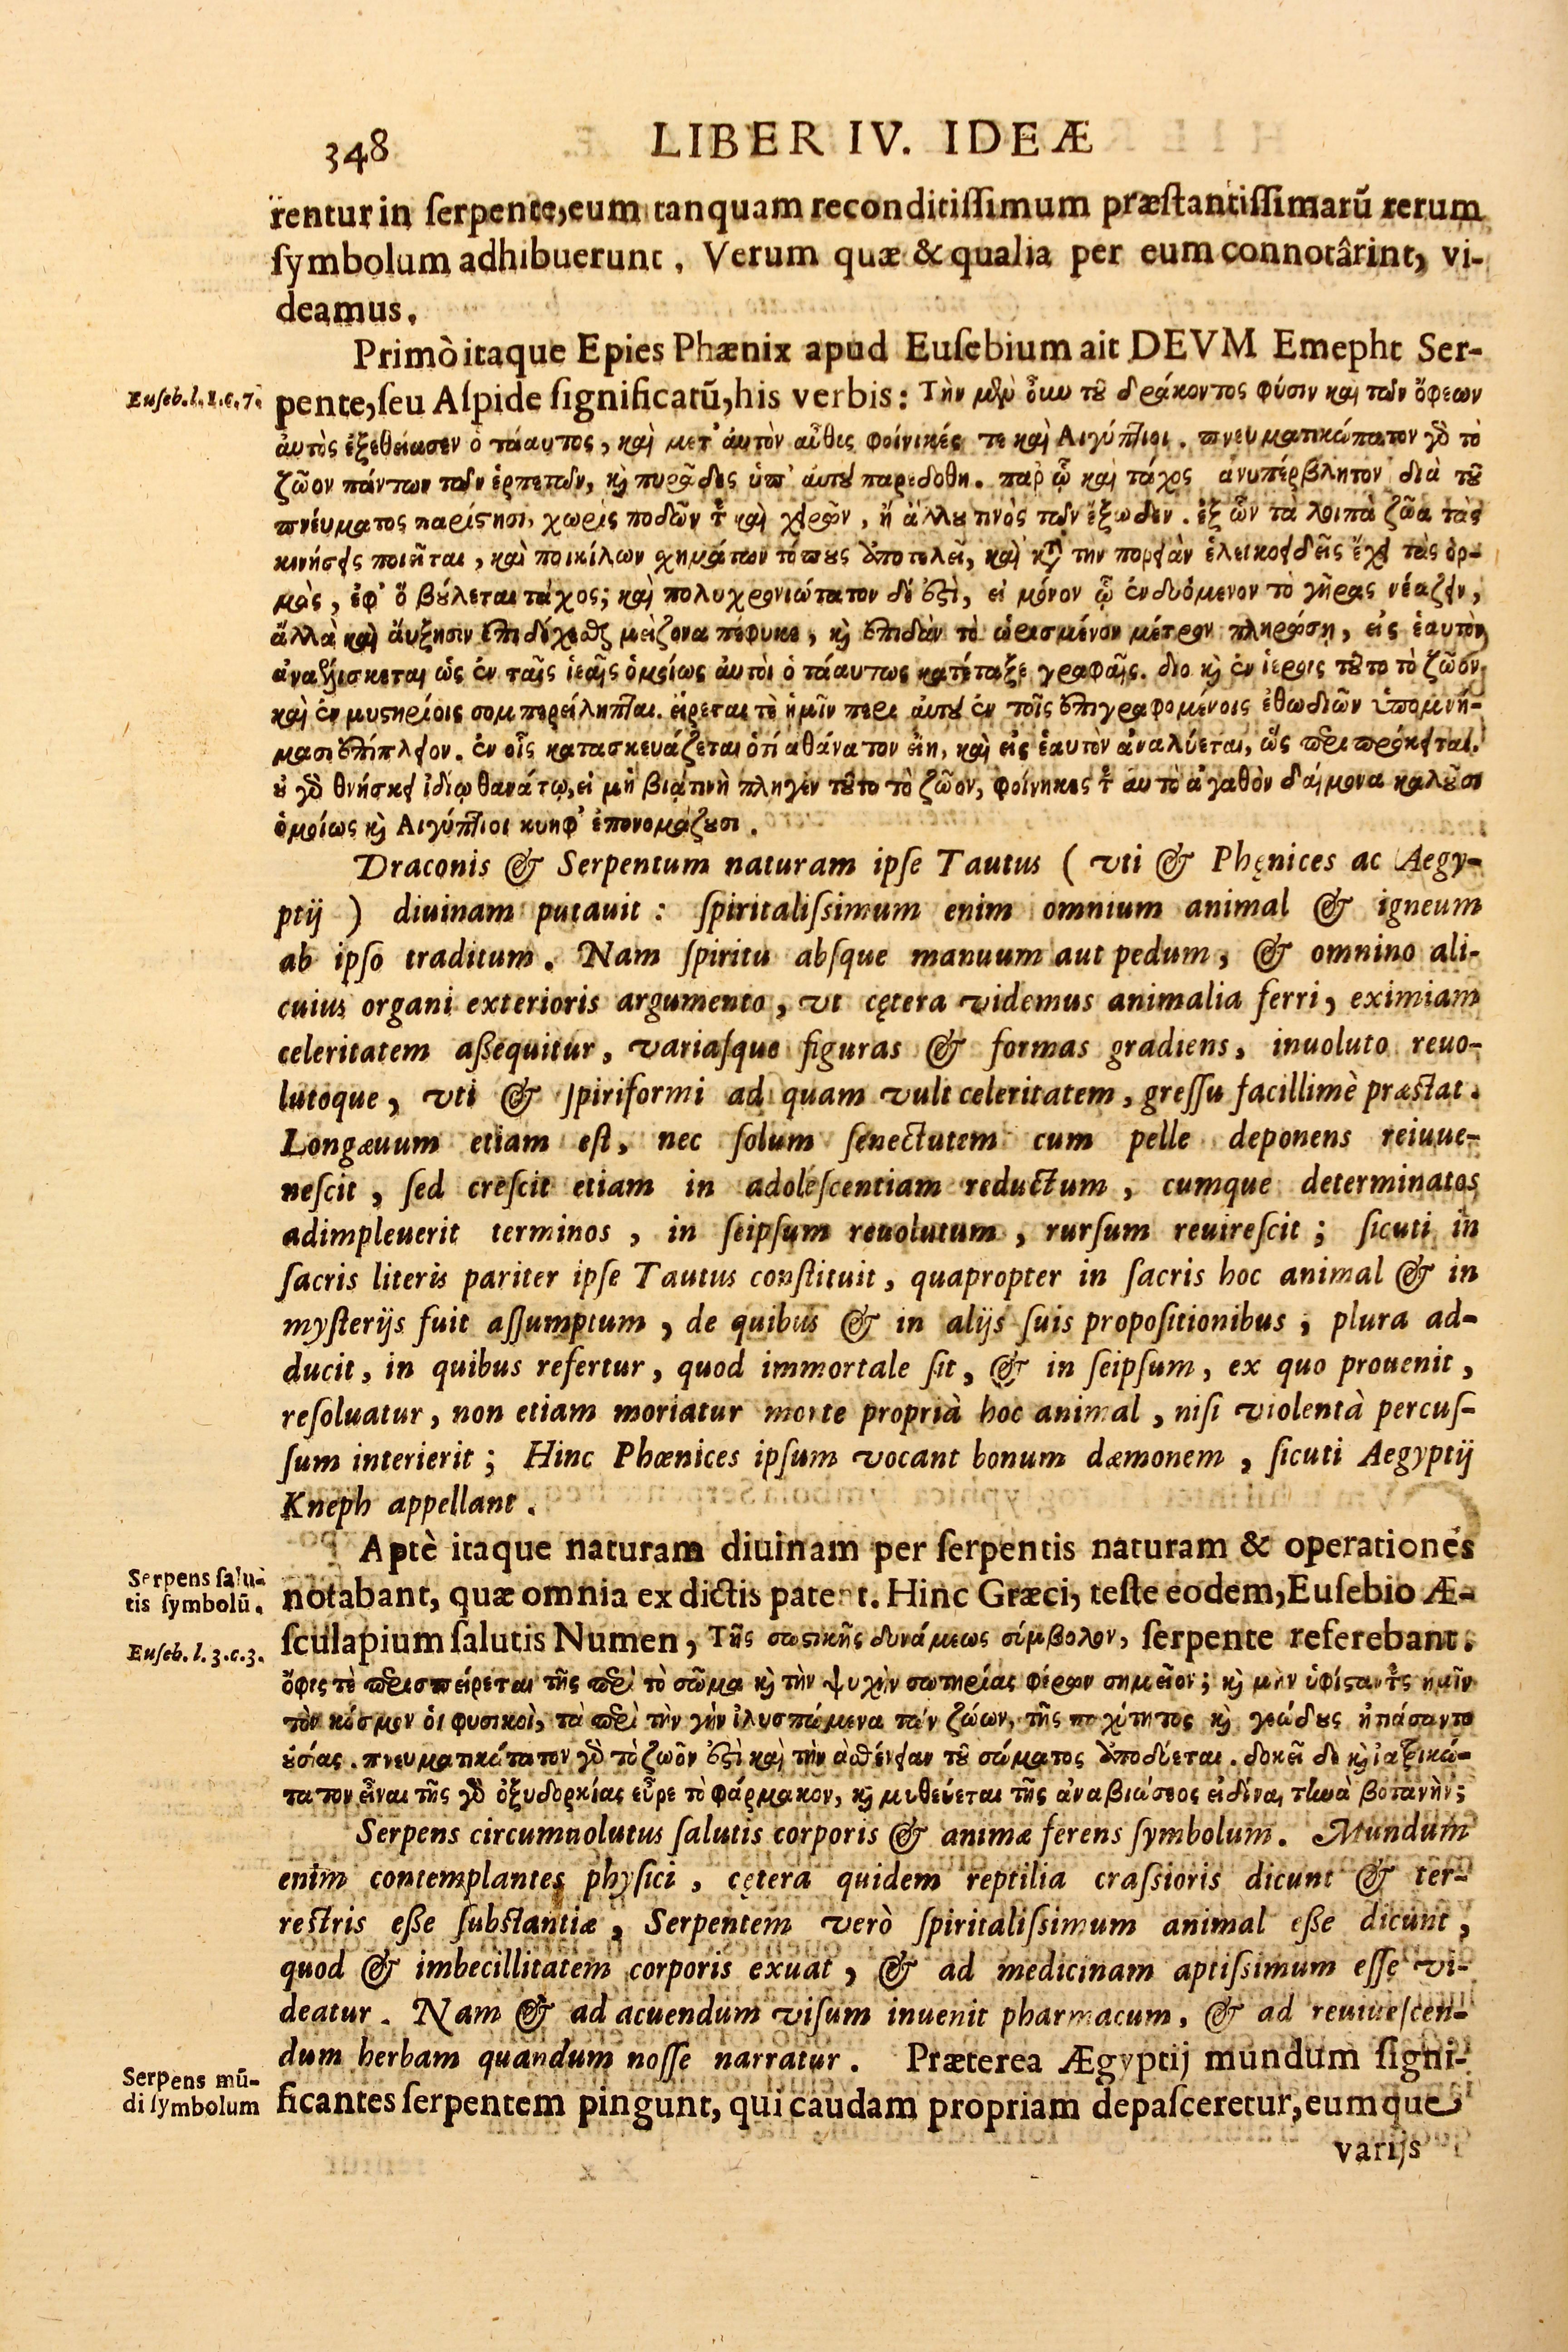 348 LIBER IV. IDEÆ
rentur in ſerpente, eum tanquam reconditiſſimum præſtantiſſimarũ rerum
ſymbolum adhibuerunt. Verum quæ & qualia per eum connotârint, vi-
deamus.
Primò itaque Epies Phænix apud Euſebium ait DEVM Emepht Ser-
Euſeb. l. 1. c. 7.
pente, ſeu Aſpide ſignificatũ, his verbis: Τὴν μὲν οὖν τȣ͂ δράκοντος φύσιν καὶ τῶν ὄφεων
ἀυτὸς ἐξεθείωσεν ὁ τάαυτος, καὶ μετ' ἀυτὸν αὖθις φοίνικές τε καὶ Αἰγύπτιοι. πνευματικώτατον γὸ τὸ
ζῶον πάντων τῶν ἑρπετῶν, κὶ πυρῶδες ὑπ' ἀυτȣ παρεδοθη. παρ ᾧ καὶ τάχος ἀνυπέρβλητον διὰ τȣ͂
πνέυματος παρίστησι, χωρις ποδῶν τὲ καὶ χειρῶν, ἢ ἄλλȣ τινὸς τῶν ἔξωθεν. ἐξ ὧν τὰ λοιπὰ ζῶα τὰς
κινήσεις ποιεῖται, καὶ ποικίλων χημάτων τύπους ἀποτελεῖ, καὶ κτ̀ την πορείαν ἑλεικοειδεῖς ἔχει τὰς ὁρ-
μὰς, ἐφ' ὃ βȣ́λεται τάχος; καὶ πολυχρονιώτατον δέ ἐστὶ, ει μόνον ᾧ ἐνδυόμενον τὸ γῆρας νέαζειν,
ἄλλὰ καὶ ἄυξησιν ἐπιδέχεσθαι μείζονα πέφυκε, κὶ ἐπιδὰν τὸ ὡρισμένον μέτρον πληρώσῃ, εἰς ἑαυτὸν
ἀναλίσκεται ὡς ἐν ταῖς ἱεαῖς ὁμοίως ἀυτὸι ὁ τάαυτως κατέταξε γραφαῖς. διο κὶ ἐν ἱεροις τȣ͂το τὸ ζῶον,
καὶ ἐν μυστηρίοις συμπερείληπται. ἐίρεται τὲ ἡμῖν περι ἀυτȣ ἐν τοῖς ἐπιγραφομένοις ἐθωδιῶν ὑπομνή-
μασι ἐπίπλεον. ἐν οἷς κατασκευάζεται ὁτί αθάνατον εἴη, καὶ εἰς ἑαυτὸν ἀναλύεται, ὥς περι πρόκειται.
ȣ γὸ θνήσκει ἰδίῳ θανάτῳ, εἰ μὴ βιᾳ τινὴ πληγὲν τȣ͂το τὸ ζῶον, φοίνηκες τὲ ἀυτὸ ἀγαθὸν δαίμονα καλȣ͂σι
ὁμοίως κὶ Αἰγύπτιοι κνηφ' ἐπονομάζȣσι.
Draconis & Serpentum naturam ipſe Tautus ( vti & Phęnices ac Aegy-
ptij ) diuinam putauit : ſpiritaliſsimum enim omnium animal & igneum
ab ipſo traditum. Nam ſpiritu abſque manuum aut pedum, & omnino ali-
cuius organi exterioris argumento, vt cętera videmus animalia ferri, eximiam
celeritatem aßequitur, variaſque figuras & formas gradiens, inuoluto reuo-
lutoque, vti & ſpiriformi ad quam vult celeritatem, greſſu facillimè præstat.
Longæuum etiam eſt, nec ſolum ſenectutem cum pelle deponens reiuue-
neſcit, ſed creſcit etiam in adoleſcentiam reductum, cumque determinatos
adimpleuerit terminos, in ſeipſum reuolutum, rurſum reuireſcit; ſicuti in
ſacris literis pariter ipſe Tautus conſtituit, quapropter in ſacris hoc animal & in
myſterijs fuit aſſumptum, de quibus & in alijs ſuis propoſitionibus; plura ad-
ducit, in quibus refertur, quod immortale ſit, & in ſeipſum, ex quo prouenit,
reſoluatur, non etiam moriatur morte propriâ hoc animal, niſi violentà percuſ-
ſum interierit; Hinc Phœnices ipſum vocant bonum dæmonem, ſicuti Aegyptij
Kneph appellant.
Aptè itaque naturam diuinam per ſerpentis naturam & operationes
Serpens ſalu-
tis ſymbolũ.
notabant, quæ omnia ex dictis patent. Hinc Græci, teſte eodem, Euſebio Æ-
Euſeb. l. 3. c. 3.
ſculapium ſalutis Numen, Τῆς σωστικῆς δυνάμεως σύμβολον, ſerpente referebant.
ὄφις τὲ περισπείρεται τῆς περὶ τὸ σῶμα κὶ τὴν ψυχὴν σωτηρίας φέρων σημεῖον; κὶ μὴν ὑφίσταντὲς ημῖν
τὸν κόσμον ὁι φυσικοὶ, τὰ περὶ τὴν γὴν ἰλυσπώμενα τῶν ζώων, τῆς παχύτητος κὶ γεώδȣς ἠπάσαντο
ȣσίας. πνευματικώτατον γὸ τὸ ζωὸν ἐστὶ καὶ τὴν ἀσθένειαν τȣ͂ σώματος ἀποδύεται. δοκεῖ δὲ κὶ ἰατρικώ-
τατον εἶναι τῆς γὸ ὀξυδορκίας εὗρε τὸ φάρμακον, κὶ μυθεύεται τῆς ἀναβιώσεος εἰδέναι τινὰ βοτανὴν;
Serpens circumuolutus ſalutis corporis & animæ ferens ſymbolum. Mundum
enim contemplantes phyſici, cętera quidem reptilia craſsioris dicunt & ter-
restris eße ſubstantiæ, Serpentem verò ſpiritaliſsimum animal eße dicunt,
quod & imbecillitatem corporis exuat, & ad medicinam aptiſsimum eſſe vi-
deatur. Nam & ad acuendum viſum inuenit pharmacum, & ad reuiueſcen-
dum herbam quandum noſſe narratur. Præterea Ægyptij mundum ſigni-
Serpens mũ-
di ſymbolum
ficantes ſerpentem pingunt, qui caudam propriam depaſceretur, eumque
varijs